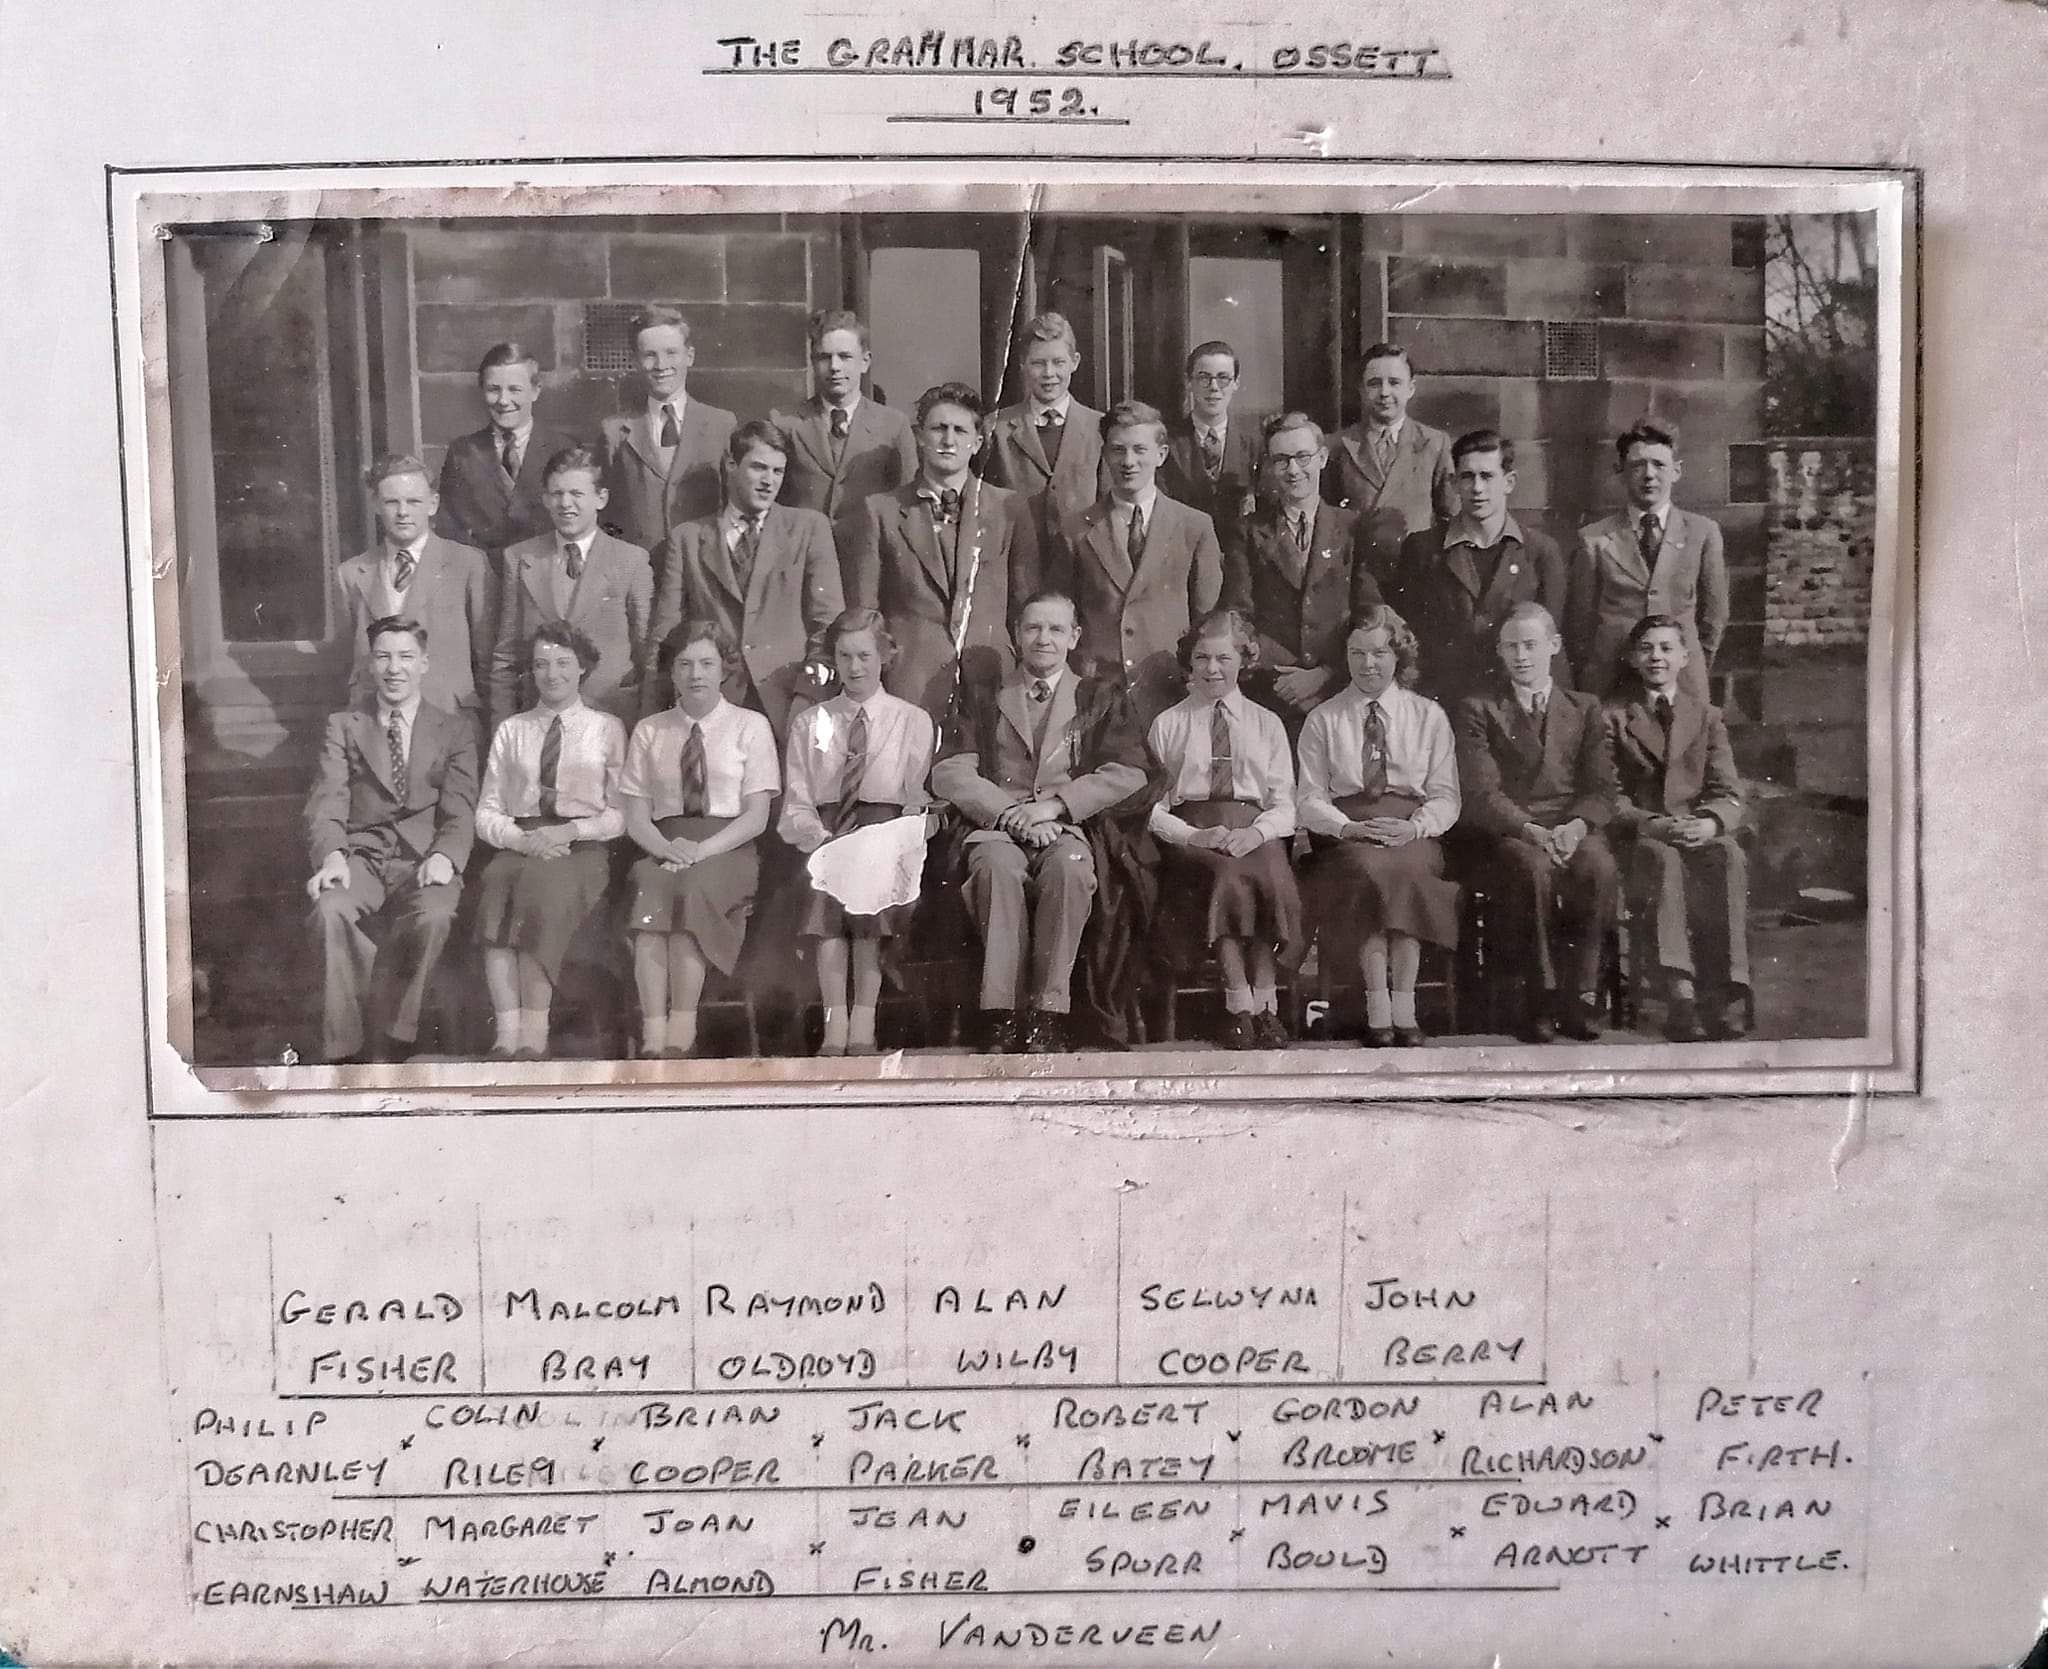 THE GRAMMAR. SCHOOL. OSSETT
1952.
GERALD MALCOLM RAYMOND ALAN SELWYN JOHN
FISHER BRAY OLDROYD WILBY COOPER BERRY
PHILIP COLIN BRIAN JACK ROBERT GORDON ALAN PETER
DEARNLEY RILEY COOPER PARKER BATEY BROOME RICHARDSON FIRTH.
CHRISTOPHER MARGARET JOAN JEAN EILEEN MAVIS EDWARD BRIAN
EARNSHAW WATERHOUSE ALMOND FISHER SPURR BOULD ARNOTT WHITTLE.
MR. VANDERVEEN